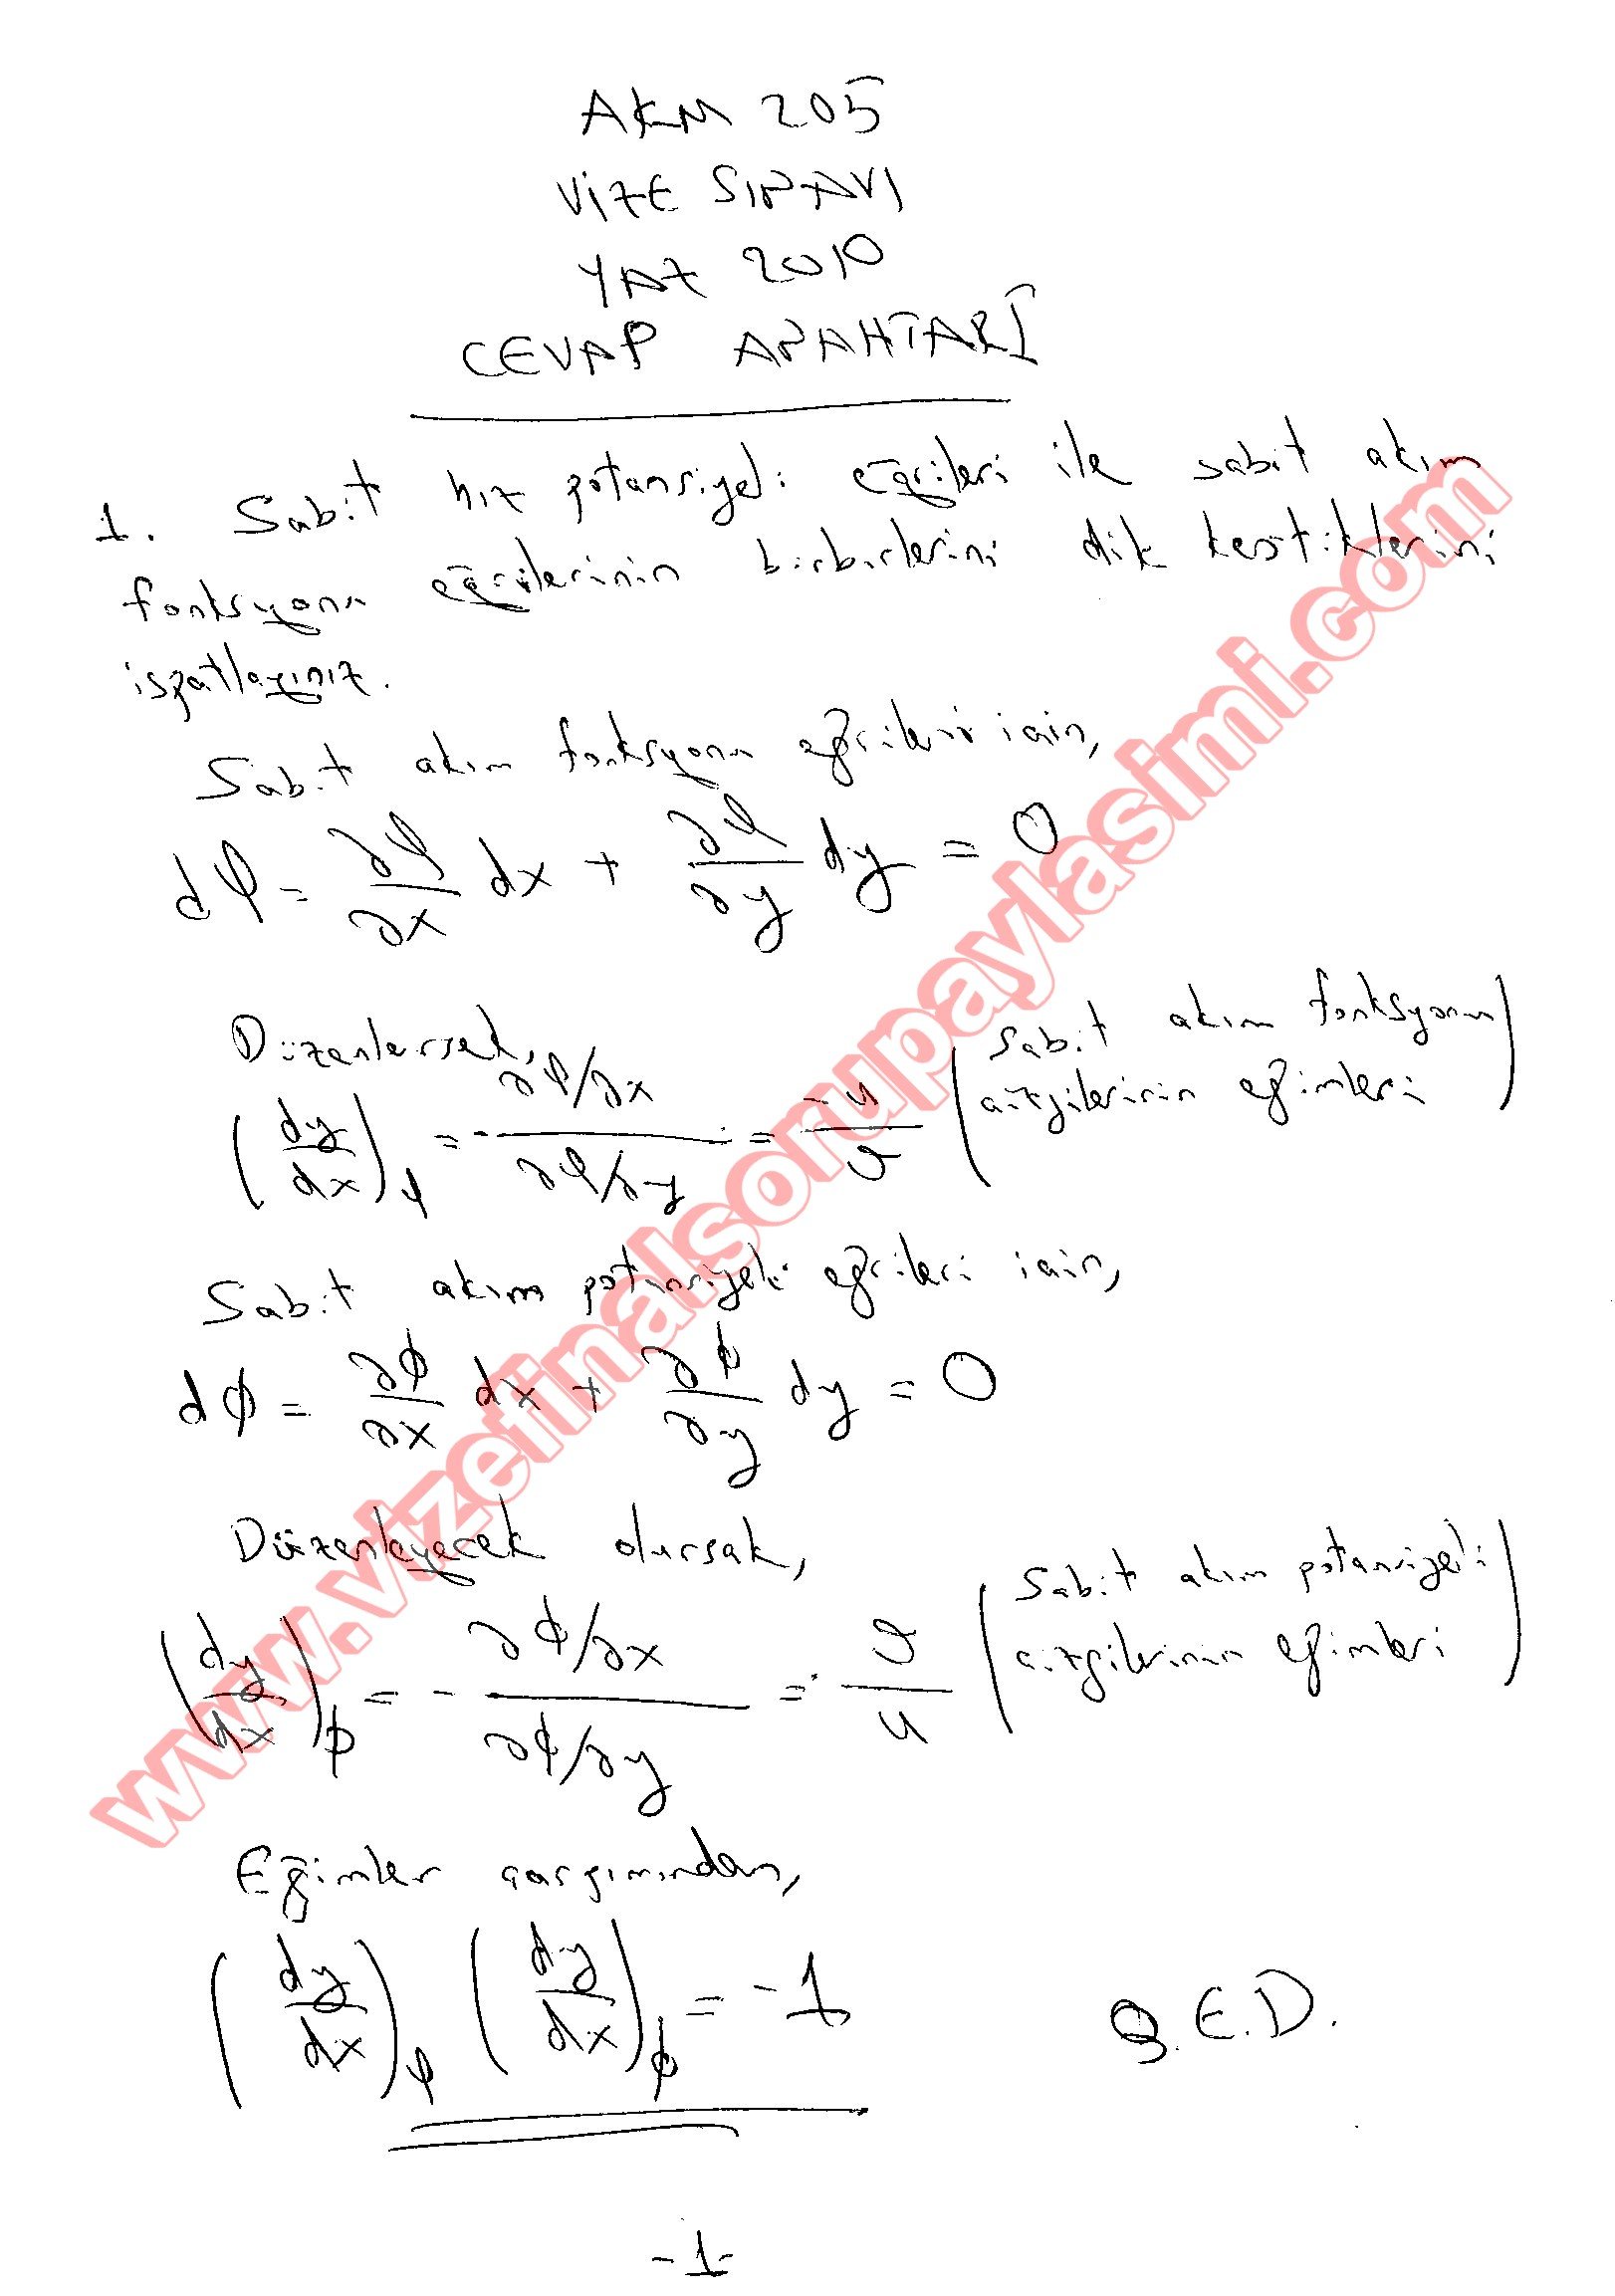 AKM 205
VİZE SINAVI
YAZ 2010
CEVAP ANAHTARI
1. Sabit hız potansiyeli eğrileri ile sabit akım
fonksyonu eğrilerinin birbirlerini dik kestiklerini
ispatlayınız.
Sabit akım fonksyonu eğrileri için,
dψ = ∂ψ/∂x dx + ∂ψ/∂y dy = 0
Düzenlersek,
(dy/dx)ψ = - (∂ψ/∂x)/(∂ψ/∂y) = -u/v (Sabit akım fonksyonu
çizgilerinin eğimleri)
Sabit akım potansiyeli eğrileri için,
dϕ = ∂ϕ/∂x dx + ∂ϕ/∂y dy = 0
Düzenleyecek olursak,
(dy/dx)ϕ = - (∂ϕ/∂x)/(∂ϕ/∂y) = v/u (Sabit akım potansiyeli
çizgilerinin eğimleri)
Eğimler çarpımından,
(dy/dx)ψ (dy/dx)ϕ = -1
Q.E.D.
-1-
www.vizefinalsorupaylasimi.com